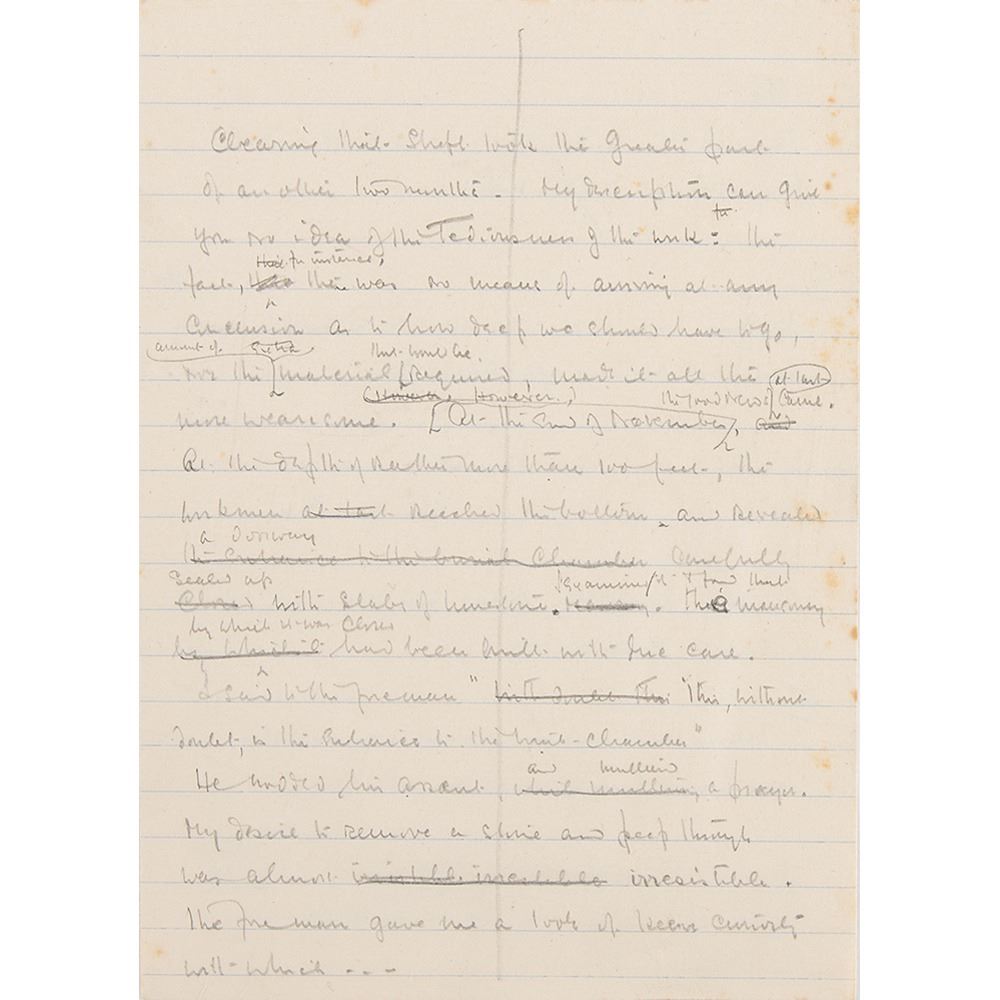 Clearing that shaft took the greater part
of another two months. My description can give
you no idea of the tediousness of the work: the
for
that for instance,
fact, there was no means of arriving at any
conclusion as to how deep we should have to go,
amount of extra
that would be
nor the material required, made it all the
However, However, the good news at last came.
more wearisome. At the end of November, and
At the depth of rather more than 100 feet, the
workmen at last reached the bottom and revealed
a doorway
the entrance to the burial chamber carefully
sealed up examining it I found that
closed with slabs of limestone. The masonry
by which it was closed
by which it had been built with due care.
I said to the foreman " without doubt this "this, without
doubt, is the entrance to the tomb-chamber"
and muttered
He nodded his assent, while muttering a prayer.
My desire to remove a stone and peep through
was almost irresistible.
The foreman gave me a look of keen curiosity
with which ---